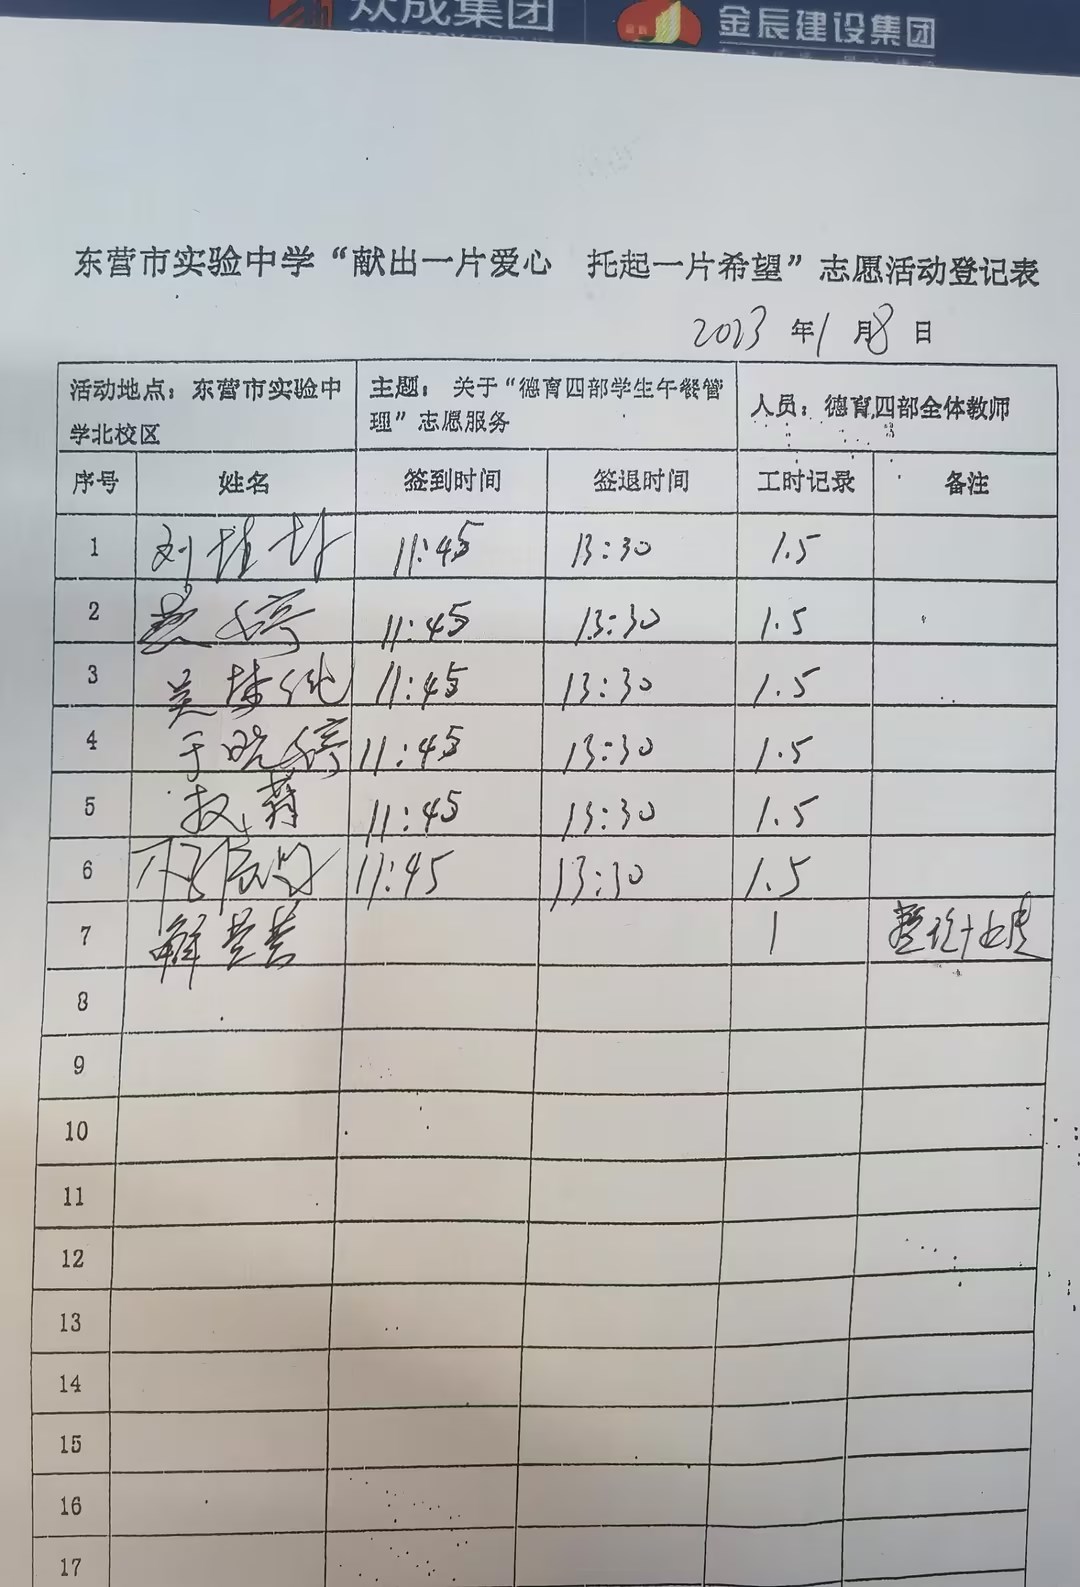 众成集团
金辰建设集团
东营市实验中学“献出一片爱心 托起一片希望”志愿活动登记表
2023 年 1 月 8 日
活动地点：东营市实验中
学北校区
主题：关于“德育四部学生午餐管
理”志愿服务
人员：德育四部全体教师
序号 姓名 签到时间 签退时间 工时记录 备注
1 刘 11:45 13:30 1.5
2 婷 11:45 13:30 1.5
3 吴 11:45 13:30 1.5
4 于晓婷 11:45 13:30 1.5
5 11:45 13:30 1.5
6 11:45 13:30 1.5
7 解 1 整
8
9
10
11
12
13
14
15
16
17